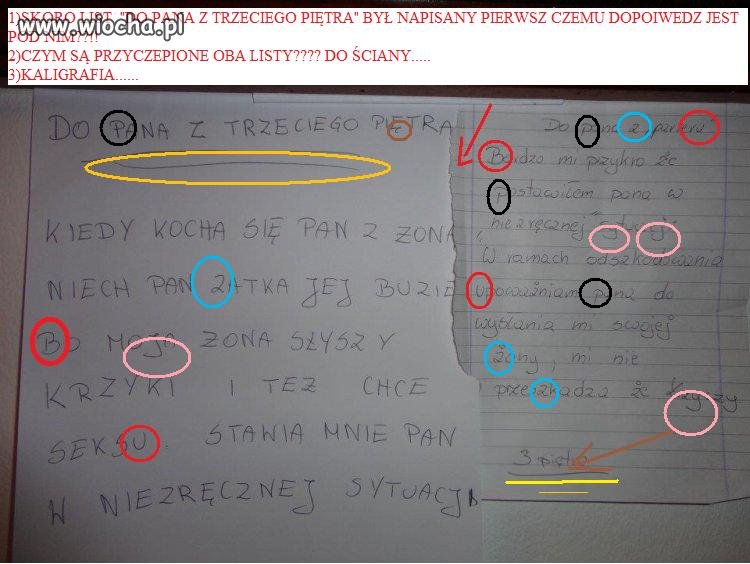 1)SKORO LIST "DO PANA Z TRZECIEGO PIĘTRA" BYŁ NAPISANY PIERWSZ CZEMU DOPOIWEDZ JEST
POD NIM??!!
www.wiocha.pl
2)CZYM SĄ PRZYCZEPIONE OBA LISTY???? DO ŚCIANY.....
3)KALIGRAFIA......
DO PANA Z TRZECIEGO PIĘTRA
KIEDY KOCHA SIĘ PAN Z ZONA,
NIECH PAN ZATKA JEJ BUZIE
BO MOJA ZONA SŁYSZY
KRZYKI I TEZ CHCE
SEKSU. STAWIA MNIE PAN
W NIEZRĘCZNEJ SYTUACJI
Do pana z "parteru"
Bardzo mi przykro że
postawiłem pana w
niezręcznej sytuacji
W ramach odszkodowania
upoważniam pana do
wysłania mi swojej
żony, mi nie
przeszkadza że krzyczy
3 piętro